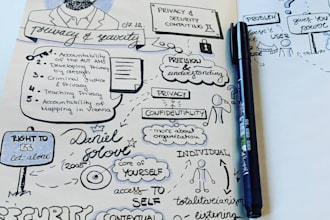 PRIVACY &
SECURITY
COMPUTING II
privacy & security
1. Accountability
2. Developing Privacy
by design
3. Criminal Justice
& Privacy
4. Teaching Privacy
5. Accountability of
Mapping in Vienna
PRECISION
&
understanding
PRIVACY
CONFIDENTIALITY
more about
organization
RIGHT TO
BE
let alone
Daniel
Solove
care of
YOURSELF
ACCESS TO
SELF
INDIVIDUAL
totalitarianism
listening
SECURITY
CONTEXTUAL
PROBLEM
USER